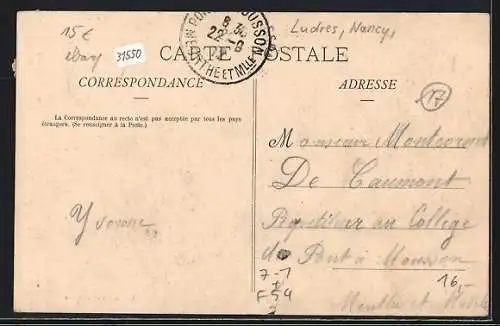 15€
ebay
31550
PONT MOUSSON
8 30
22 - 9
MEURTHE ET MLLE
Ludres, Nancy,
CARTE POSTALE
CORRESPONDANCE
ADRESSE
17
La Correspondance au recto n'est pas acceptée par tous les pays
étrangers. (Se renseigner à la Poste.)
Monsieur
De Caumont
Répétiteur au Collège
Yvonne
de Pont à Mousson
7-1
16,-
F 54
Meurthe et